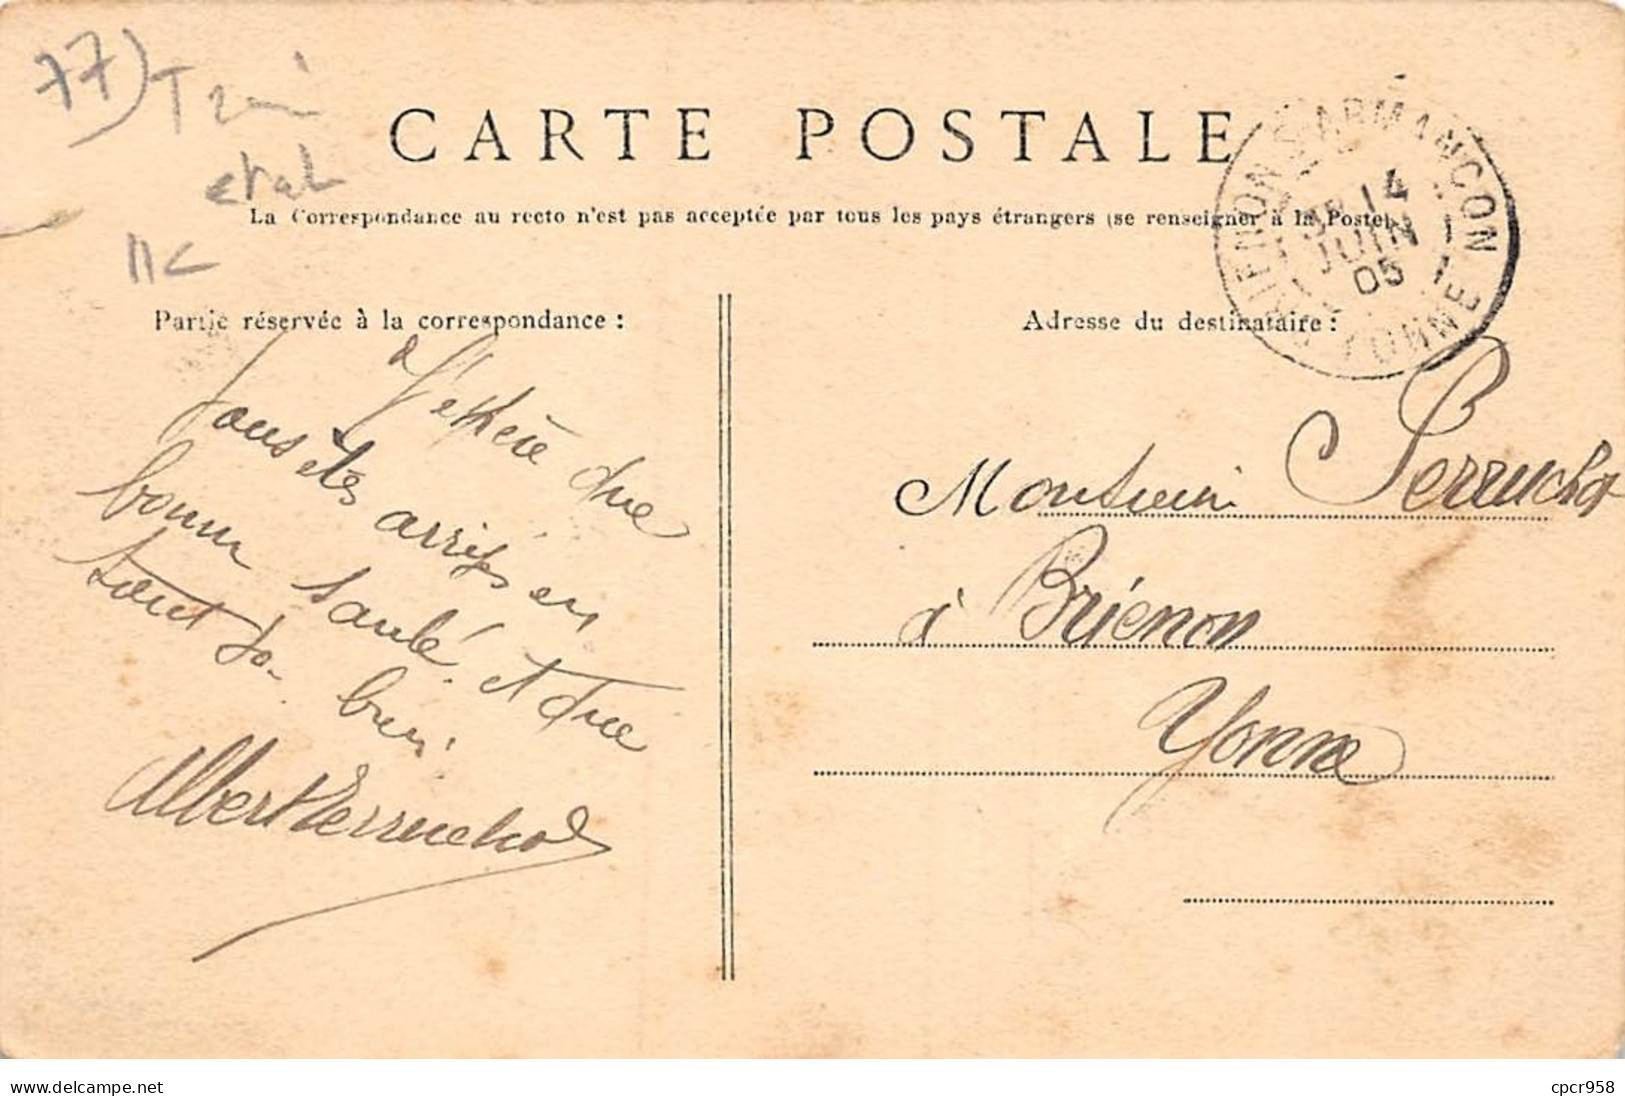 77)
CARTE POSTALE
La Correspondance au recto n'est pas acceptée par tous les pays étrangers (se renseigner à la Poste).
BRIENON S. ARMANCON
14
JUIN
05
YONNE
Partie réservée à la correspondance :
J'espère que
vous êtes arrivés en
bonne santé. et que
tout va bien.
Albert Perruchot
Adresse du destinataire :
Monsieur Perruchot
à Briénon
Yonne
www.delcampe.net
cpcr958